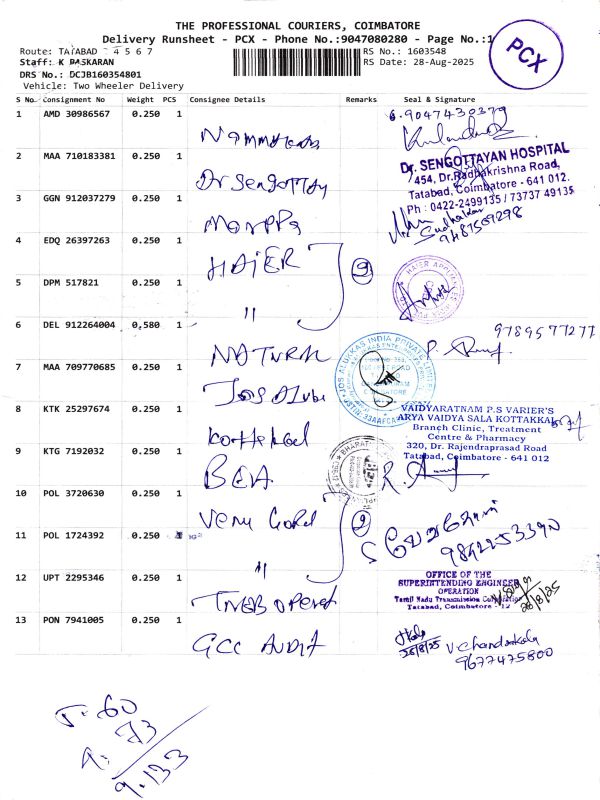 THE PROFESSIONAL COURIERS, COIMBATORE
Delivery Runsheet - PCX - Phone No.:9047080280 - Page No.:1
PCX
Route: TATABAD - 4 5 6 7
RS No.: 1603548
Staff: K BASKARAN
RS Date: 28-Aug-2025
DRS No.: DCJB160354801
Vehicle: Two Wheeler Delivery
S No Consignment No Weight PCS Consignee Details Remarks Seal & Signature
1 AMD 30986567 0.250 1
9047430379
2 MAA 710183381 0.250 1 Dr Sengottay
Dr. SENGOTTAYAN HOSPITAL
454, Dr.Radhakrishna Road,
Tatabad, Coimbatore - 641 012.
Ph : 0422-2499135 / 73737 49135
3 GGN 912037279 0.250 1
9487509298
4 EDQ 26397263 0.250 1 HAIER
2
5 DPM 517821 0.250 1 "
6 DEL 912264004 0,580 1 NATURAL
9789577277
7 MAA 709770685 0.250 1
JOS ALUKKAS INDIA PRIVATE LIMITED
8 KTK 25297674 0.250 1 kottakal
VAIDYARATNAM P.S VARIER'S
ARYA VAIDYA SALA KOTTAKKAL
Branch Clinic, Treatment
Centre & Pharmacy
320, Dr. Rajendraprasad Road
Tatabad, Coimbatore - 641 012
9 KTG 7192032 0.250 1
10 POL 3720630 0.250 1 Venu Gold
2
11 POL 1724392 0.250 "
9842253390
12 UPT 2295346 0.250 1 TNEB
OFFICE OF THE
SUPERINTENDING ENGINEER
OPERATION
Tamil Nadu Transmission Corporation
Tatabad, Coimbatore - 12
28/8/25
13 PON 7941005 0.250 1 GCC AUDIT
28/8/25 V Chandrakala
9677475800
60
73
133